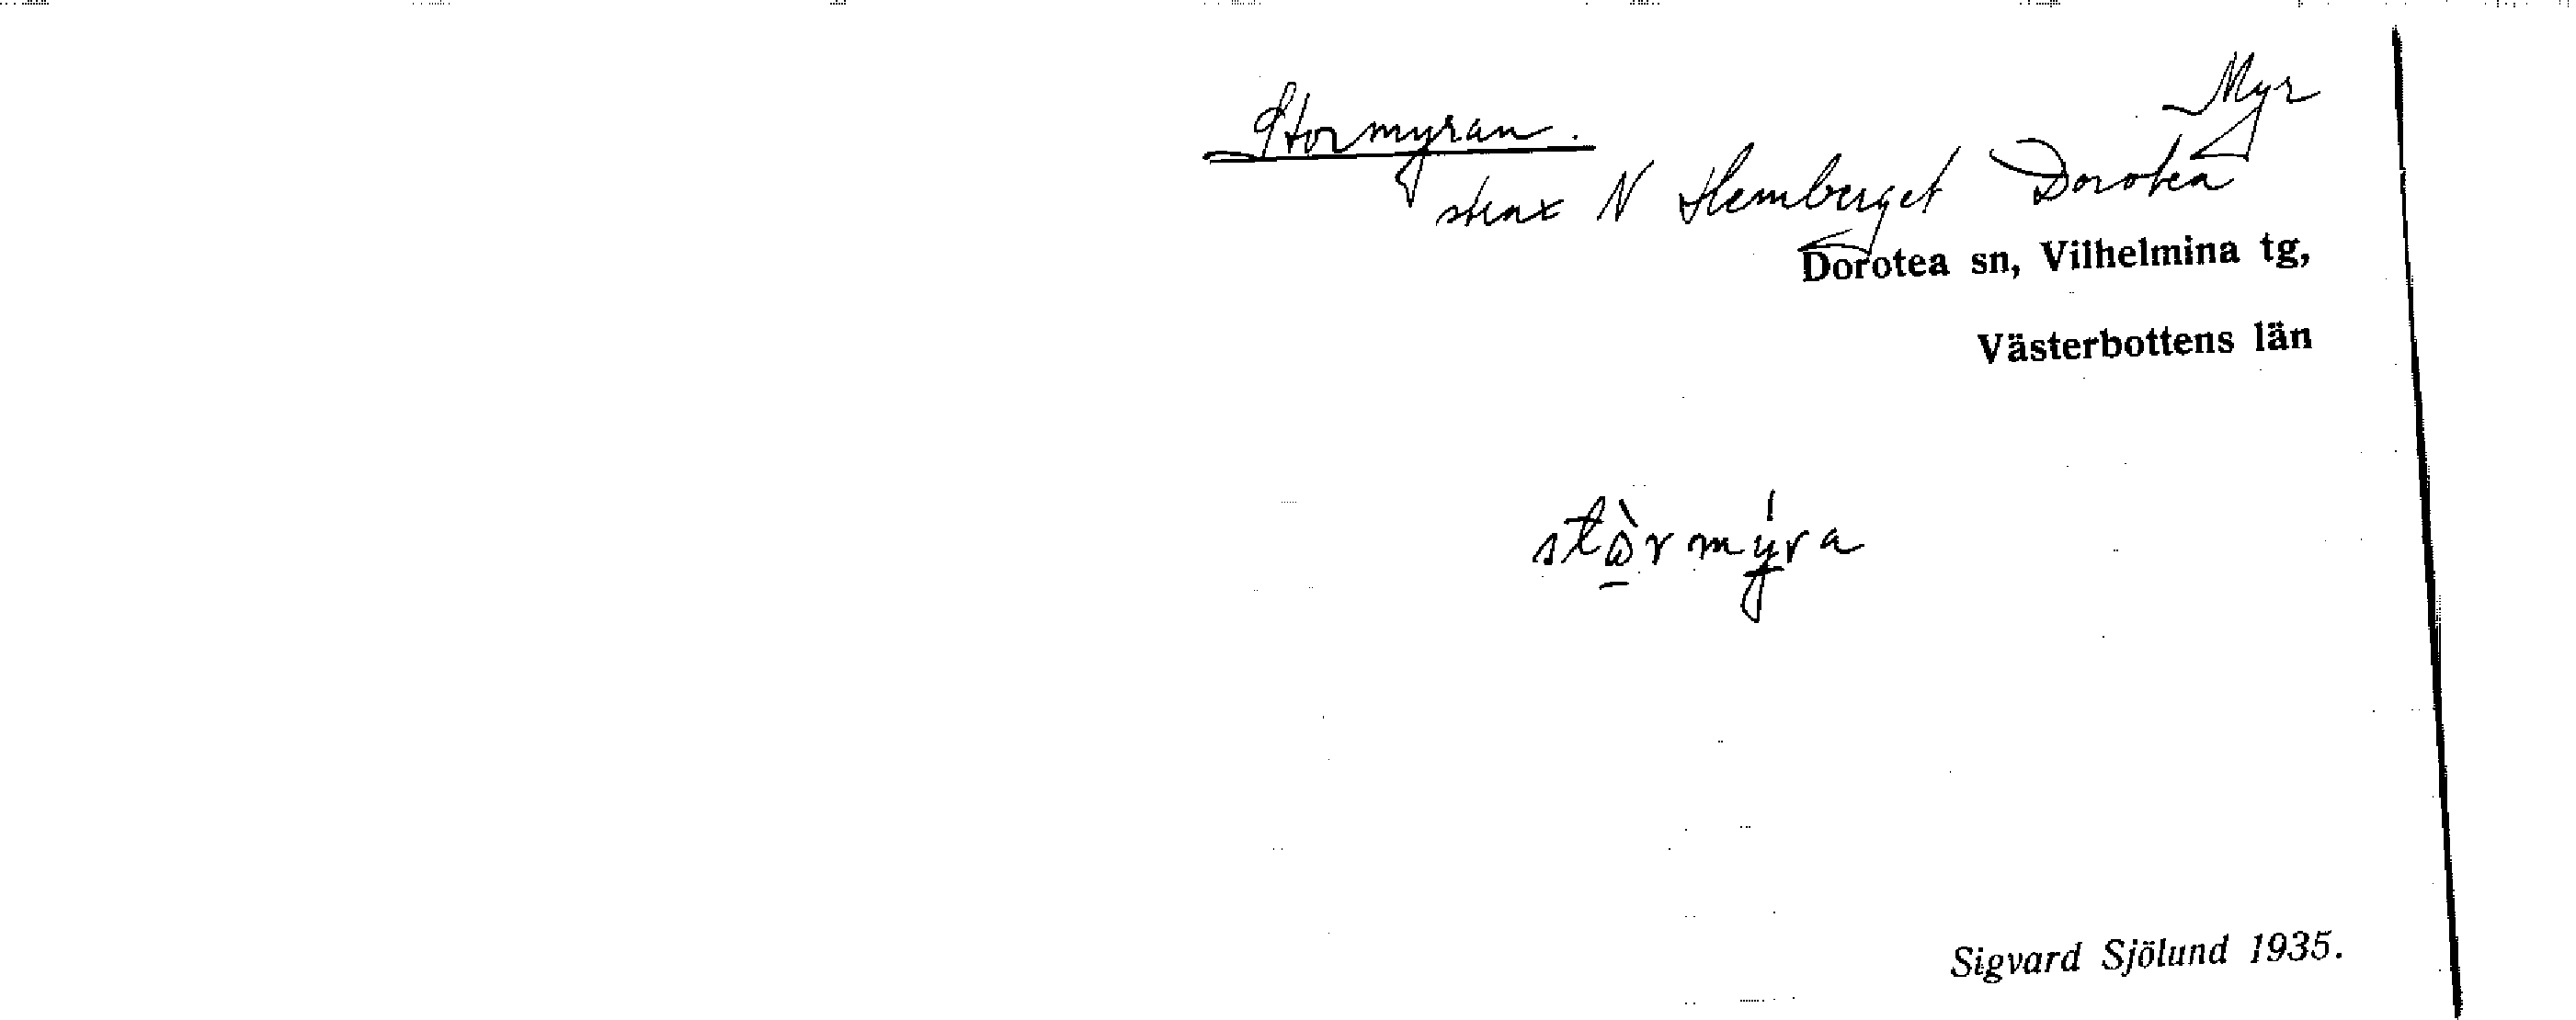 Myr
Stormyran.
strax N Hemberget Dorotea
Dorotea sn, Vilhelmina tg,
Västerbottens län
stòrmýra
Sigvard Sjölund 1935.